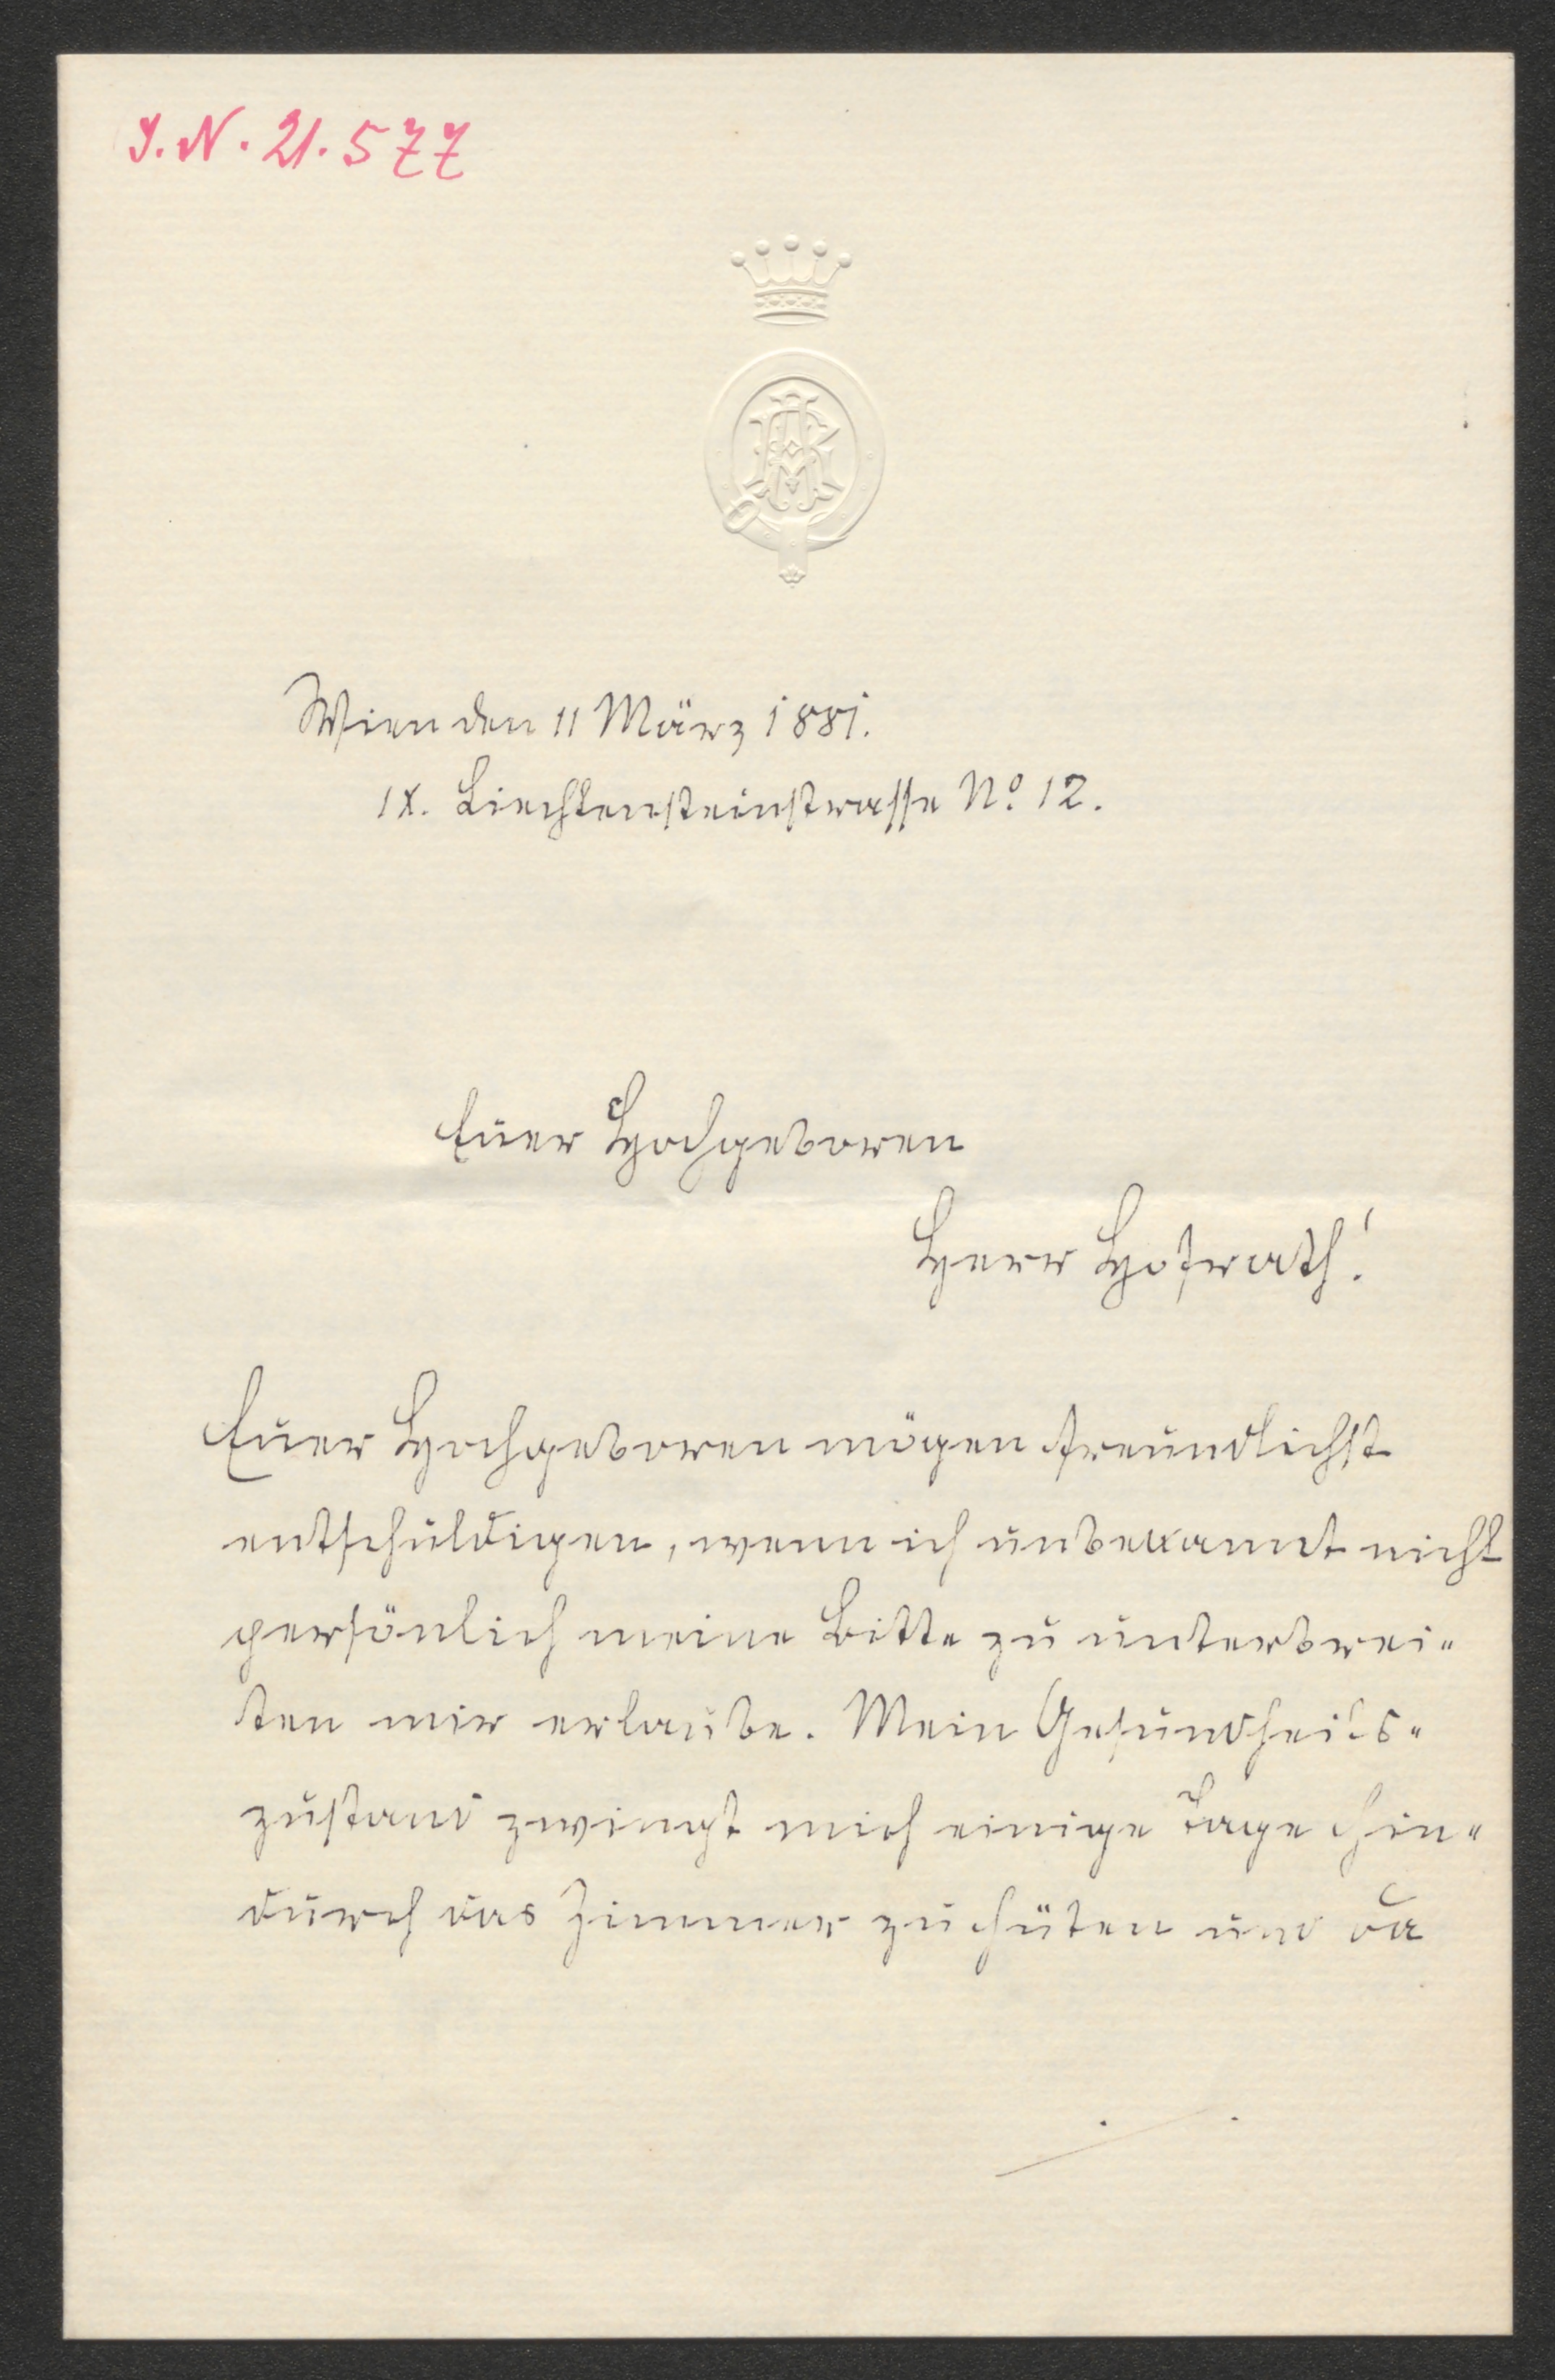 I.N. 21.577
Wien den 11 März 1881.
IX. Liechtensteinstrasse No. 12.
Euer Hochgeboren
Herr Hofrath!
Euer Hochgeboren mögen freundlichst
entschuldigen, wenn ich unbekannt nicht
persönlich meine Bitte zu unterbrei-
ten mir erlaube. Mein Gesundheits-
zustand zwingt mich einige Tage hin-
durch das Zimmer zu hüten und da